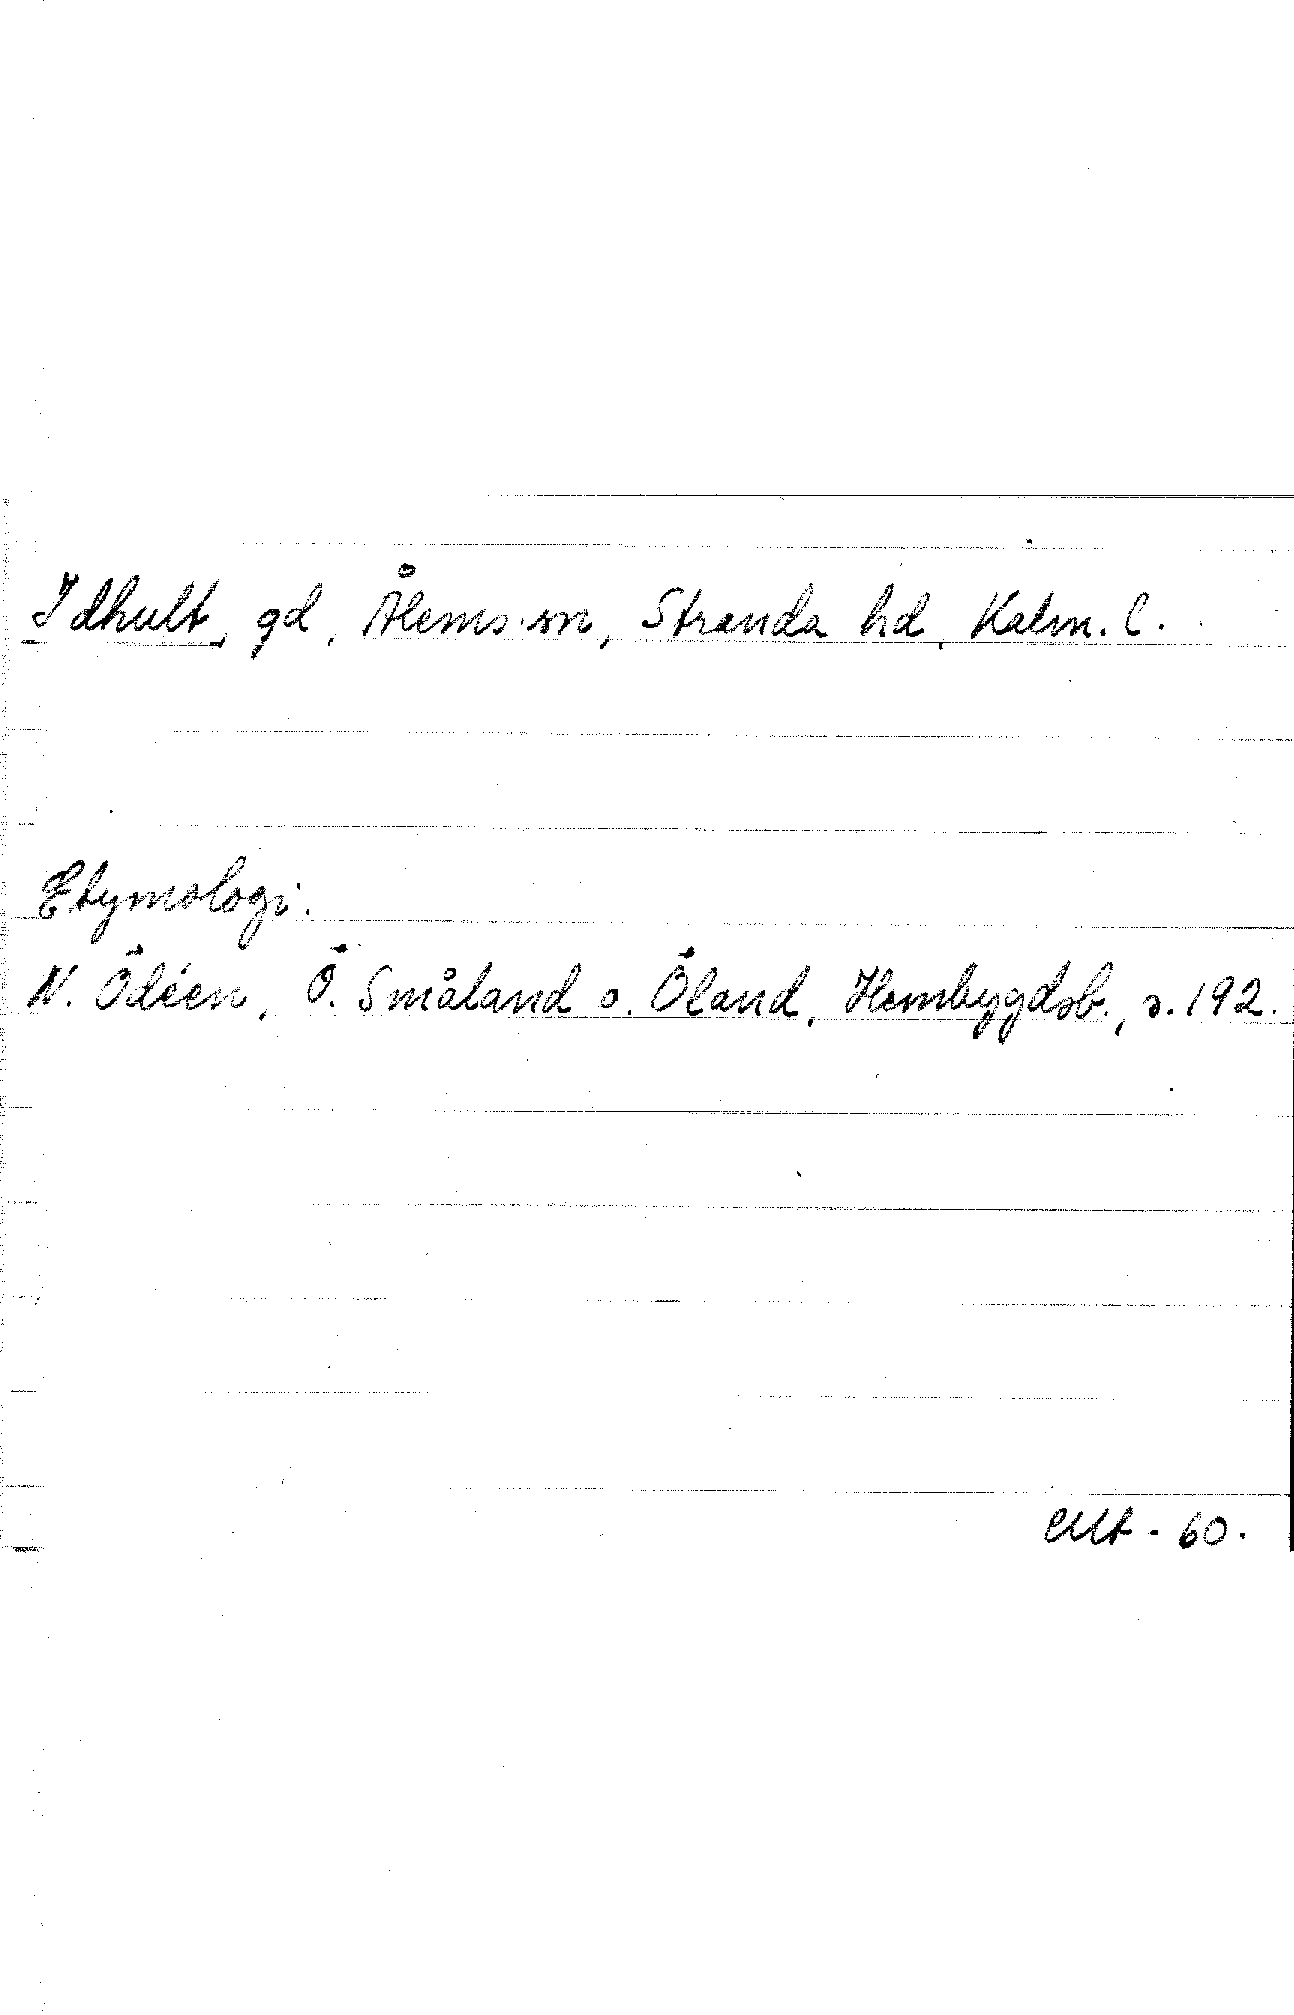 Idhult, gd, Ålems sn, Stranda hd, Kalm. l.
Etymologi.
N. Ödéen, Ö. Småland o. Öland, Hembygdsb., s. 192.
60.